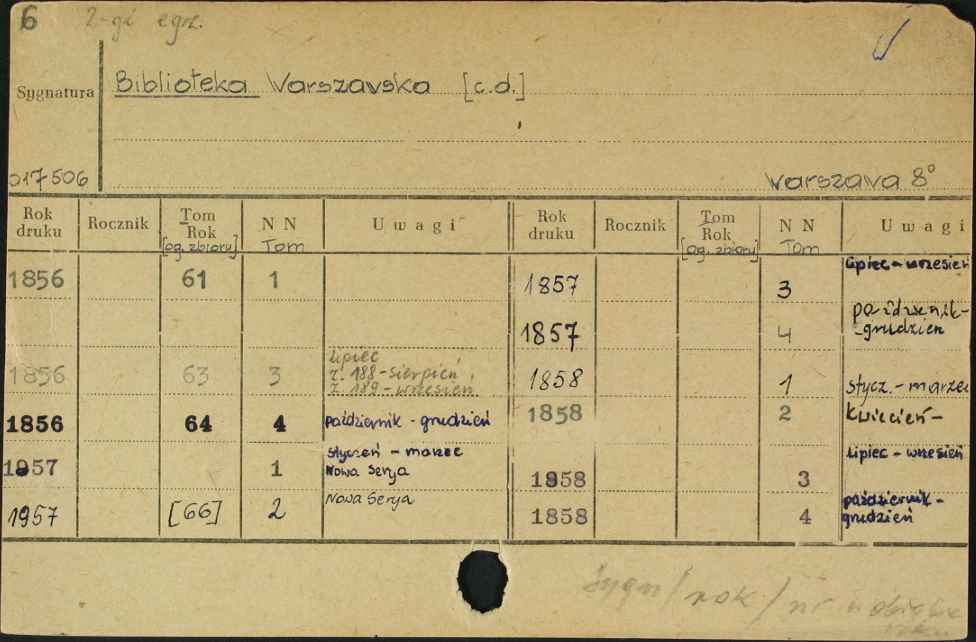 6 2-gi egz.
Sygnatura Biblioteka Warszawska [c.d.]
017506 Warszawa 8°
Rok druku Rocznik Tom Rok [og. zbioru] N N Tom Uwagi Rok druku Rocznik Tom Rok [og. zbioru] N N Tom Uwagi
1856 61 1
1857 3 lipiec - wrzesień
1857 4 październik - grudzień
1856 63 3 lipiec z. 188 - sierpień, z. 189 - wrzesień
1858 1 stycz. - marzec
1856 64 4 październik - grudzień
1858 2 Kwiecień -
1957 1 styczeń - marzec Nowa Serya
1958 3 lipiec - wrzesień
1957 [66] 2 Nowa Serya
1858 4 październik - grudzień
sygn / rok / nr